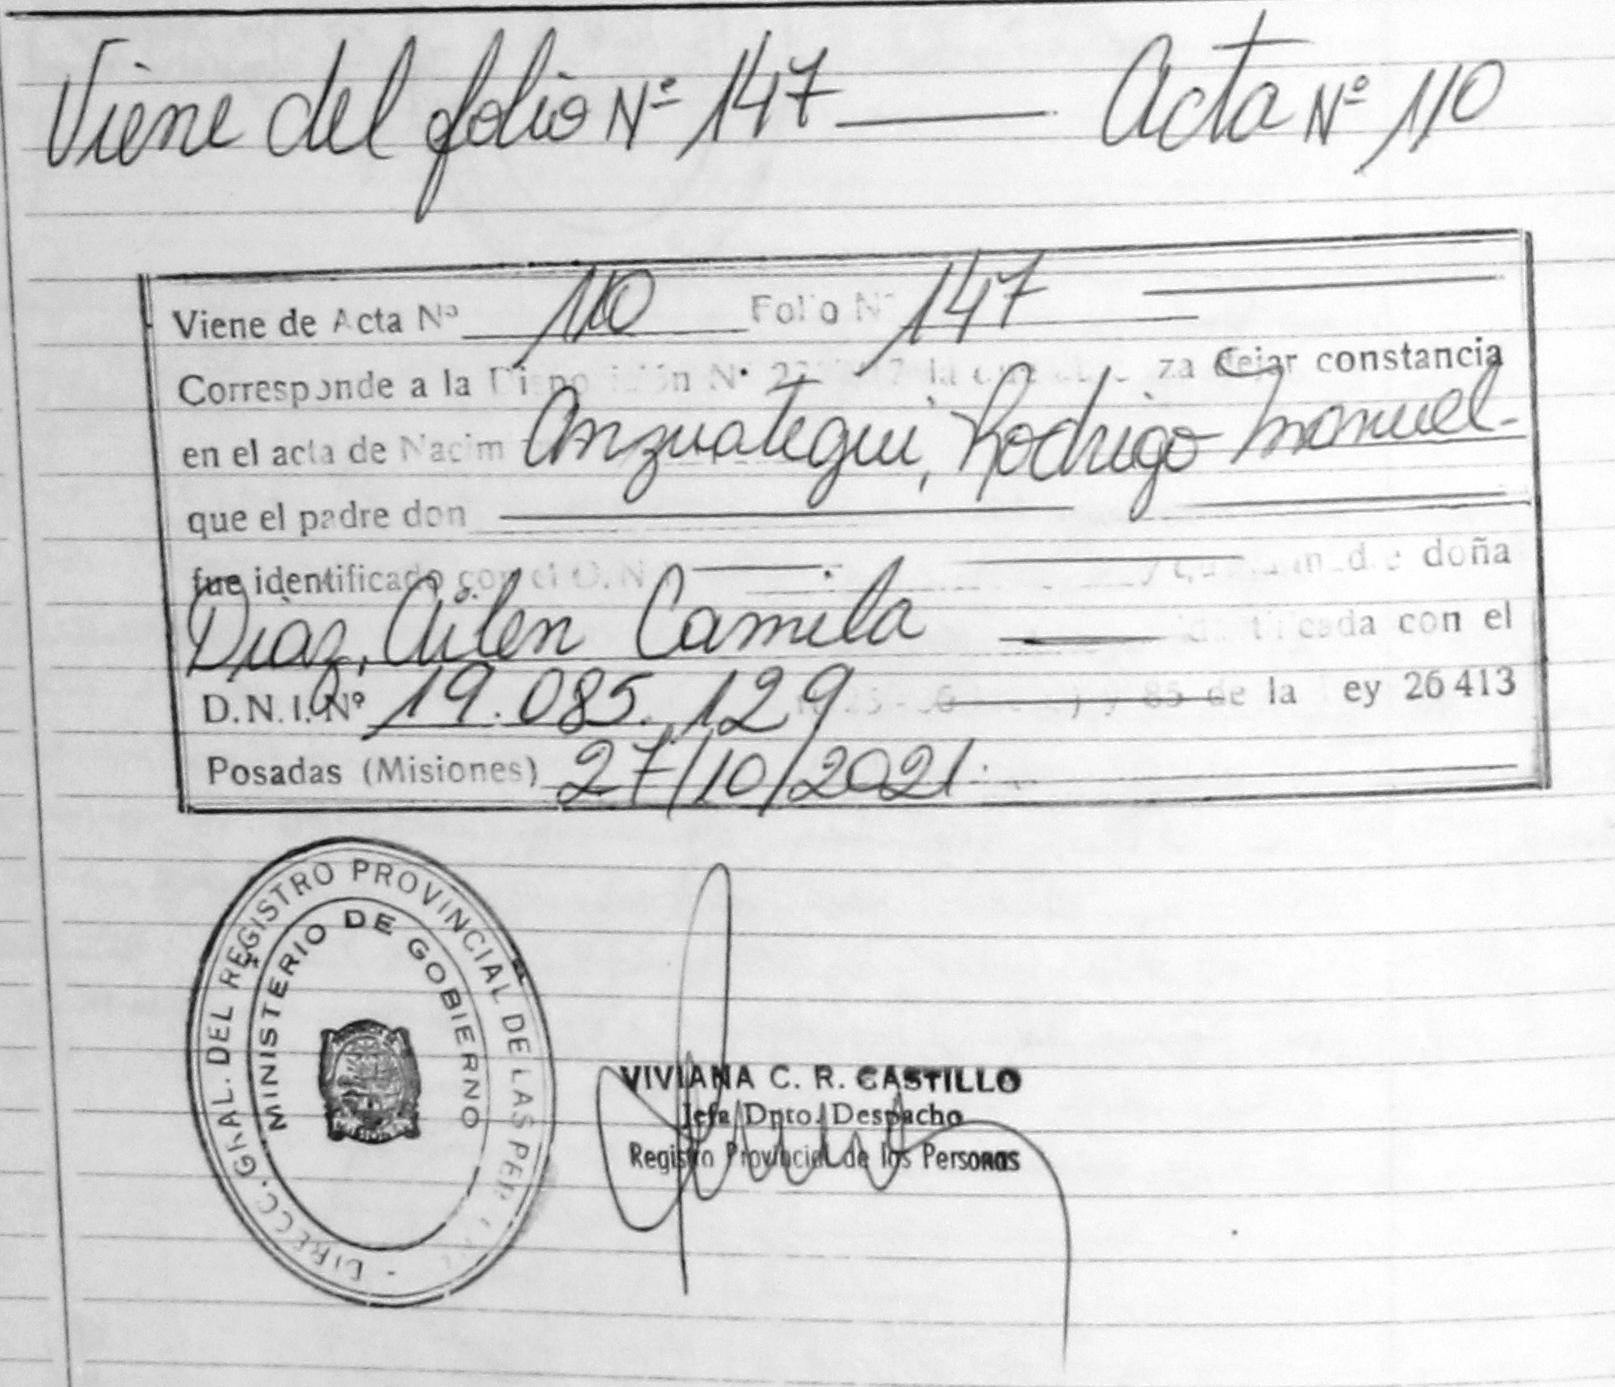 Viene del folio Nº 147 — Acta Nº 110
Viene de Acta Nº 110 Folio Nº 147
Corresponde a la Disposición Nº za dejar constancia
en el acta de Nacim Anzuategui, Rodrigo Manuel
que el padre don
fue identificado con el D.N doña
Diaz, Ailen Camila identificada con el
D.N.I. Nº 19.085.129 85 de la ey 26 413
Posadas (Misiones) 27/10/2021
DIRECC. GRAL. DEL REGISTRO PROVINCIAL DE LAS PER
MINISTERIO DE GOBIERNO
MISIONES
VIVIANA C. R. CASTILLO
Jefa Dpto. Despacho
Registro Provincial de las Personas